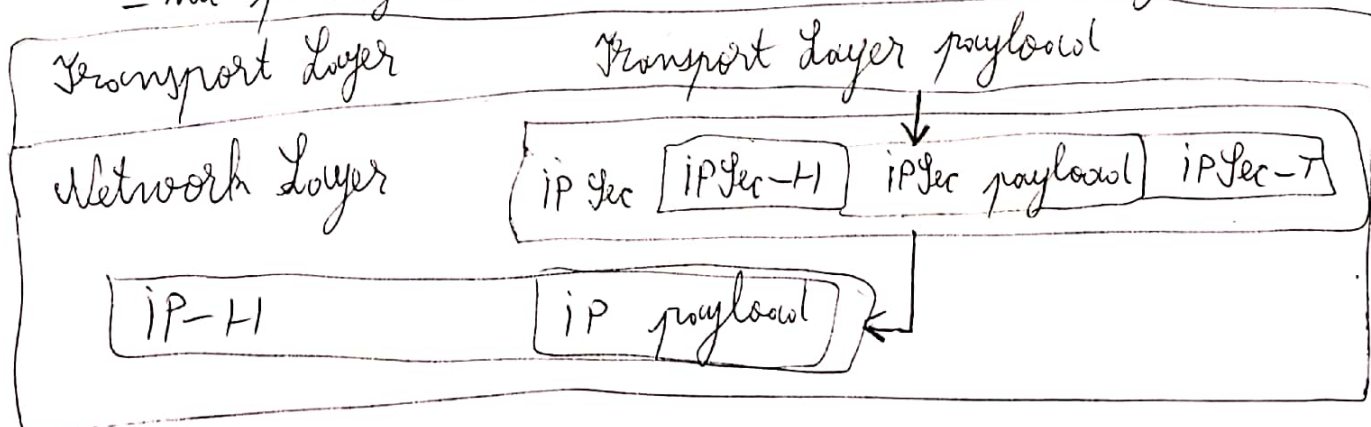 Transport Layer Transport Layer payload
Network Layer iPSec iPSec-H iPSec payload iPSec-T
iP-H iP payload